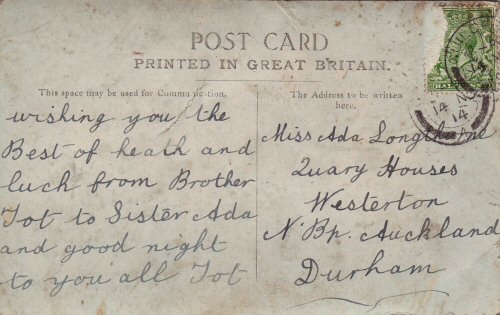 POST CARD
PRINTED IN GREAT BRITAIN.
This space may be used for Communication.
The Address to be written
here.
wishing you the
Best of heath and
luck from Brother
Tot to Sister Ada
and good night
to you all Tot
Miss Ada Longthorne
Quary Houses
Westerton
N. Bp. Auckland
Durham
14
14